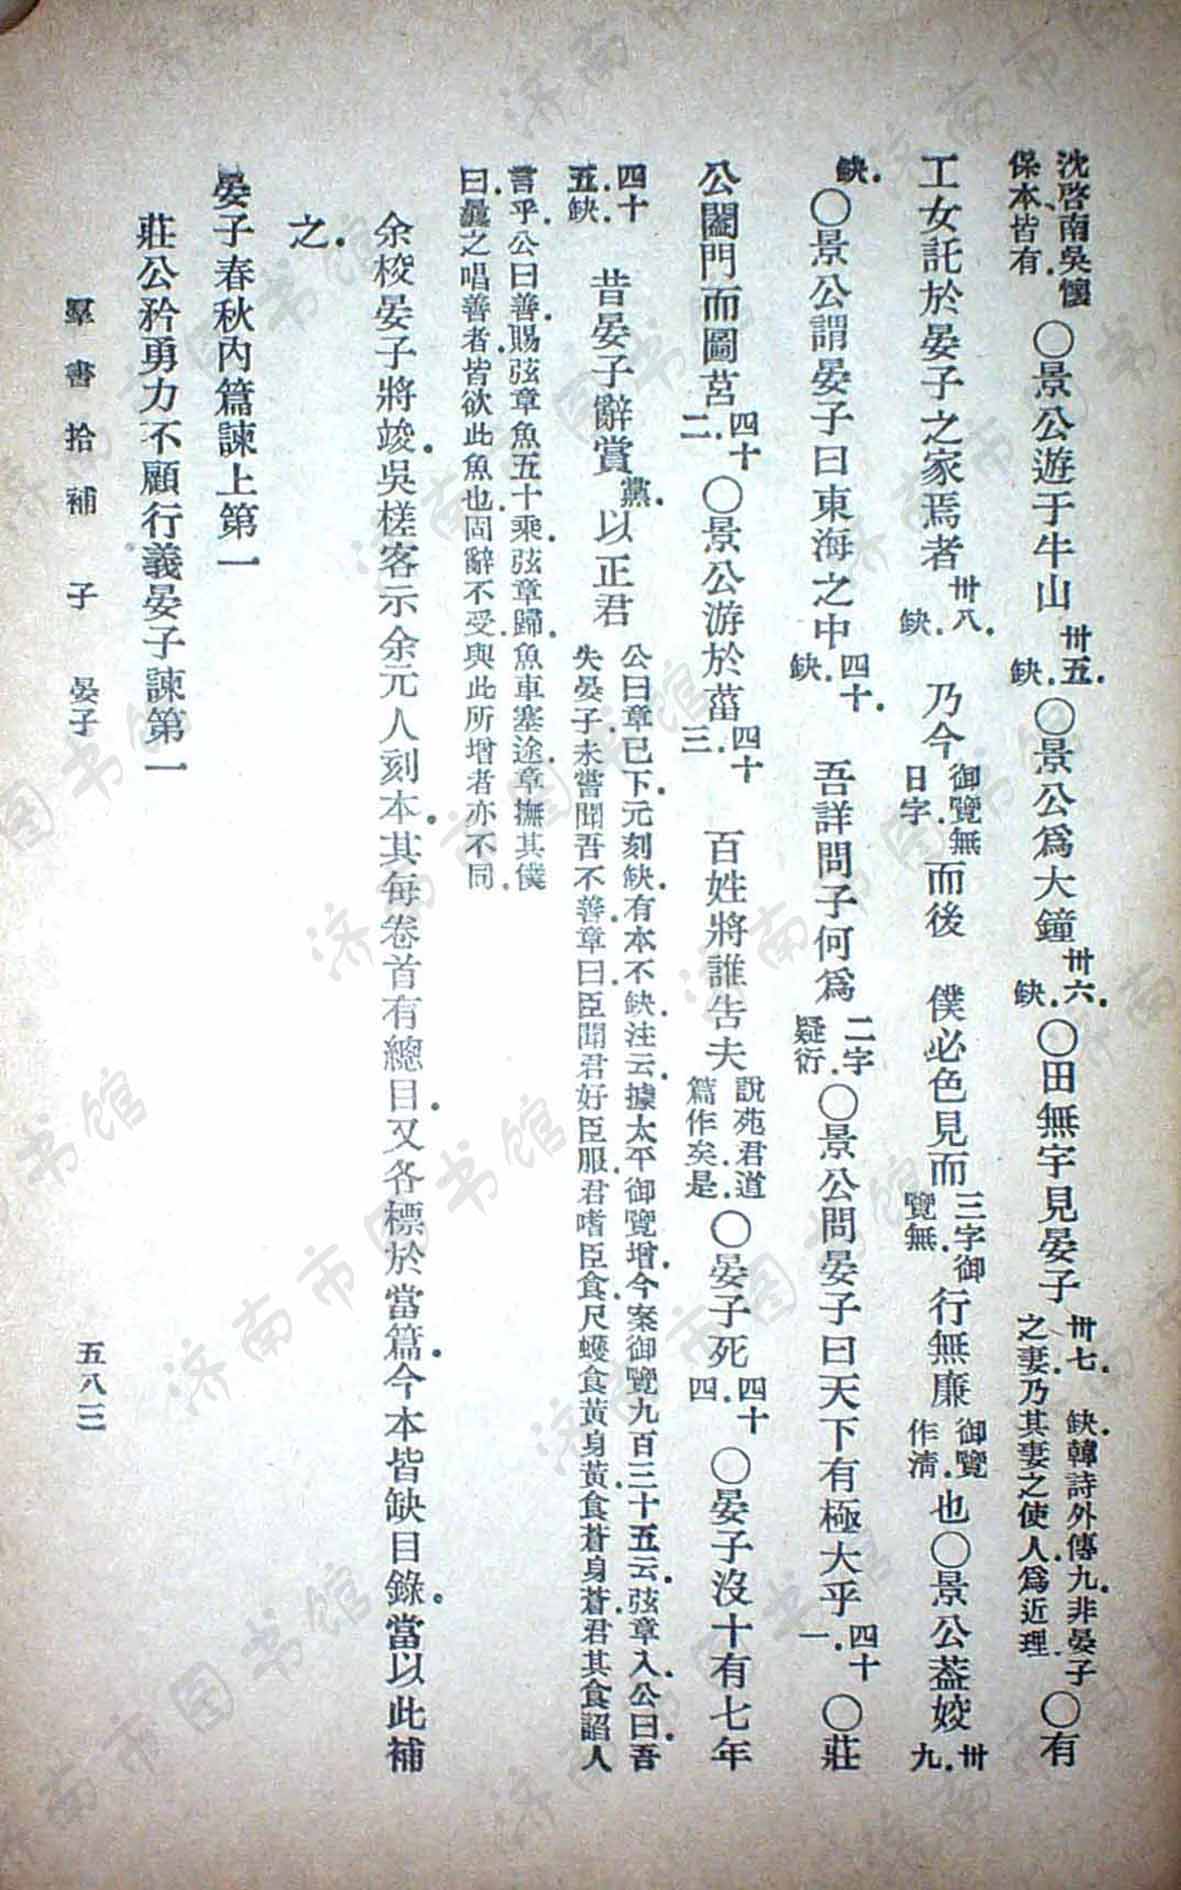 沈啓南吳懷保本皆有。〇景公遊于牛山卅五。缺。〇景公爲大鐘卅六。缺。〇田無宇見晏子卅七。缺韓詩外傳九。非晏子之妻。乃其妻之使人爲近理。〇有
工女託於晏子之家焉者卅八。缺。 乃今御覽無日字。而後 僕必色見而三字御覽無。 行無廉御覽作淸。也〇景公蓋姣卅九。
缺。〇景公謂晏子曰東海之中四十。缺。 吾詳問子何爲二字疑衍。〇景公問晏子曰天下有極大乎四十一。〇莊
公闔門而圖莒四十二。〇景公游於菑四十三。 百姓將誰告夫說苑君道篇作矣。是。〇晏子死四十四。〇晏子沒十有七年
四十五。缺。 昔晏子辭賞黨。以正君公曰章已下。元刻缺。有本不缺。注云。據太平御覽增。今案御覽九百三十五云。弦章入。公曰。吾失晏子。未嘗聞吾不善。章曰。臣聞君好臣服。君嗜臣食。尺蠖食黃身黃。食蒼身蒼。君其食諂人
言乎。公曰善。賜弦章魚五十乘。弦章歸。魚車塞途。章撫其僕曰。曩之唱善者。皆欲此魚也。固辭不受。與此所增者亦不同。
余梭晏子將竣。吳槎客示余元人刻本。其每卷首有總目。又各標於當篇。今本皆缺目錄。當以此補
之。
晏子春秋內篇諫上第一
莊公矜勇力不顧行義晏子諫第一
羣書拾補 子 晏子 五八三